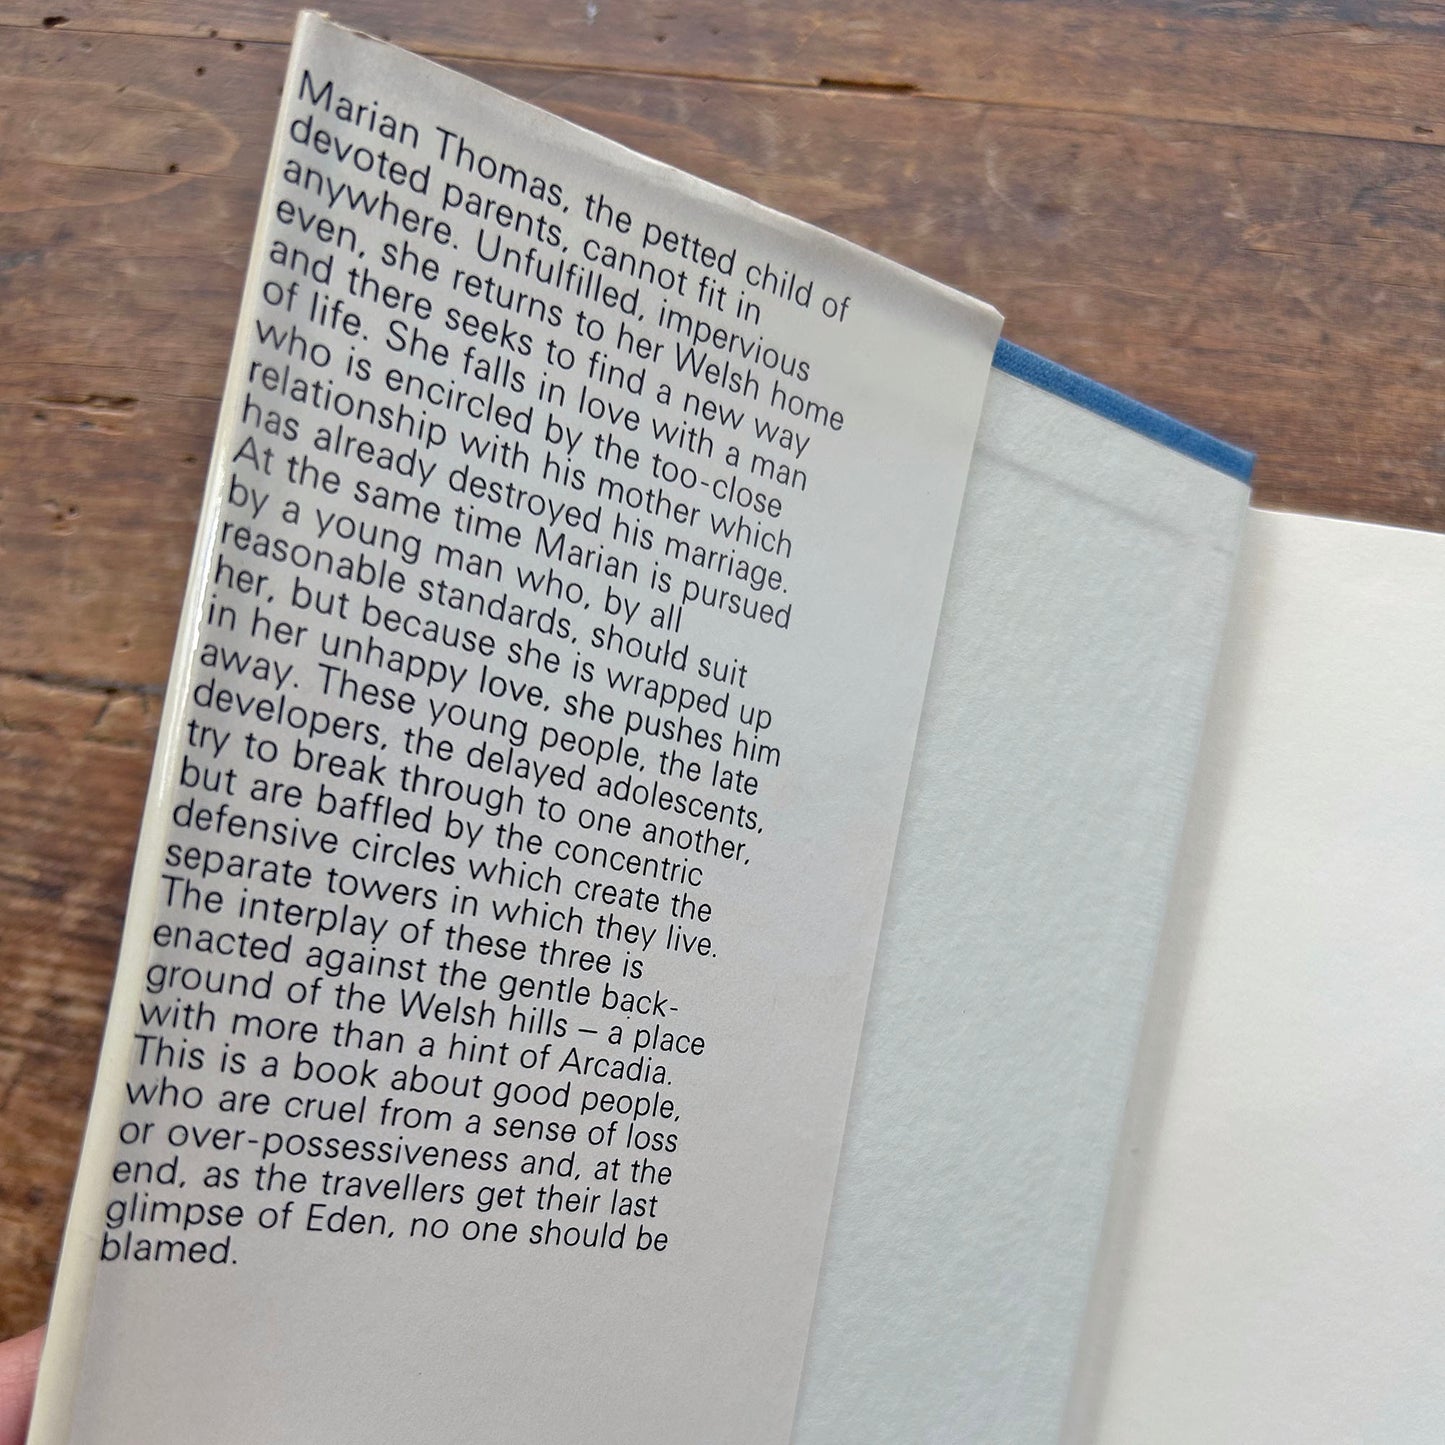 Marian Thomas, the petted child of
devoted parents, cannot fit in
anywhere. Unfulfilled, impervious
even, she returns to her Welsh home
and there seeks to find a new way
of life. She falls in love with a man
who is encircled by the too-close
relationship with his mother which
has already destroyed his marriage.
At the same time Marian is pursued
by a young man who, by all
reasonable standards, should suit
her, but because she is wrapped up
in her unhappy love, she pushes him
away. These young people, the late
developers, the delayed adolescents,
try to break through to one another,
but are baffled by the concentric
defensive circles which create the
separate towers in which they live.
The interplay of these three is
enacted against the gentle back-
ground of the Welsh hills – a place
with more than a hint of Arcadia.
This is a book about good people,
who are cruel from a sense of loss
or over-possessiveness and, at the
end, as the travellers get their last
glimpse of Eden, no one should be
blamed.